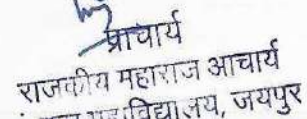 प्राचार्य
राजकीय महाराज आचार्य
महाविद्यालय, जयपुर